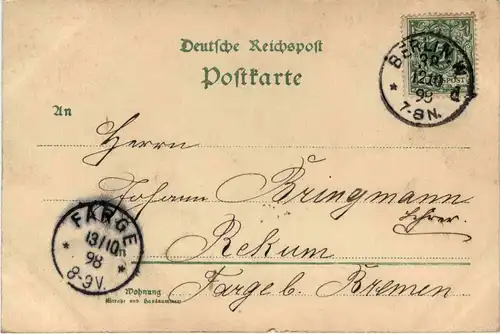 Deutsche Reichspost
Postkarte
BERLIN W
12.10
98
7-8N.
d
An
Herrn
Johann Bringmann
Lehrer.
Rekum
Farge b. Bremen
FARGE
13/10
98
8-9V.
Wohnung
(Straße und Hausnummer)